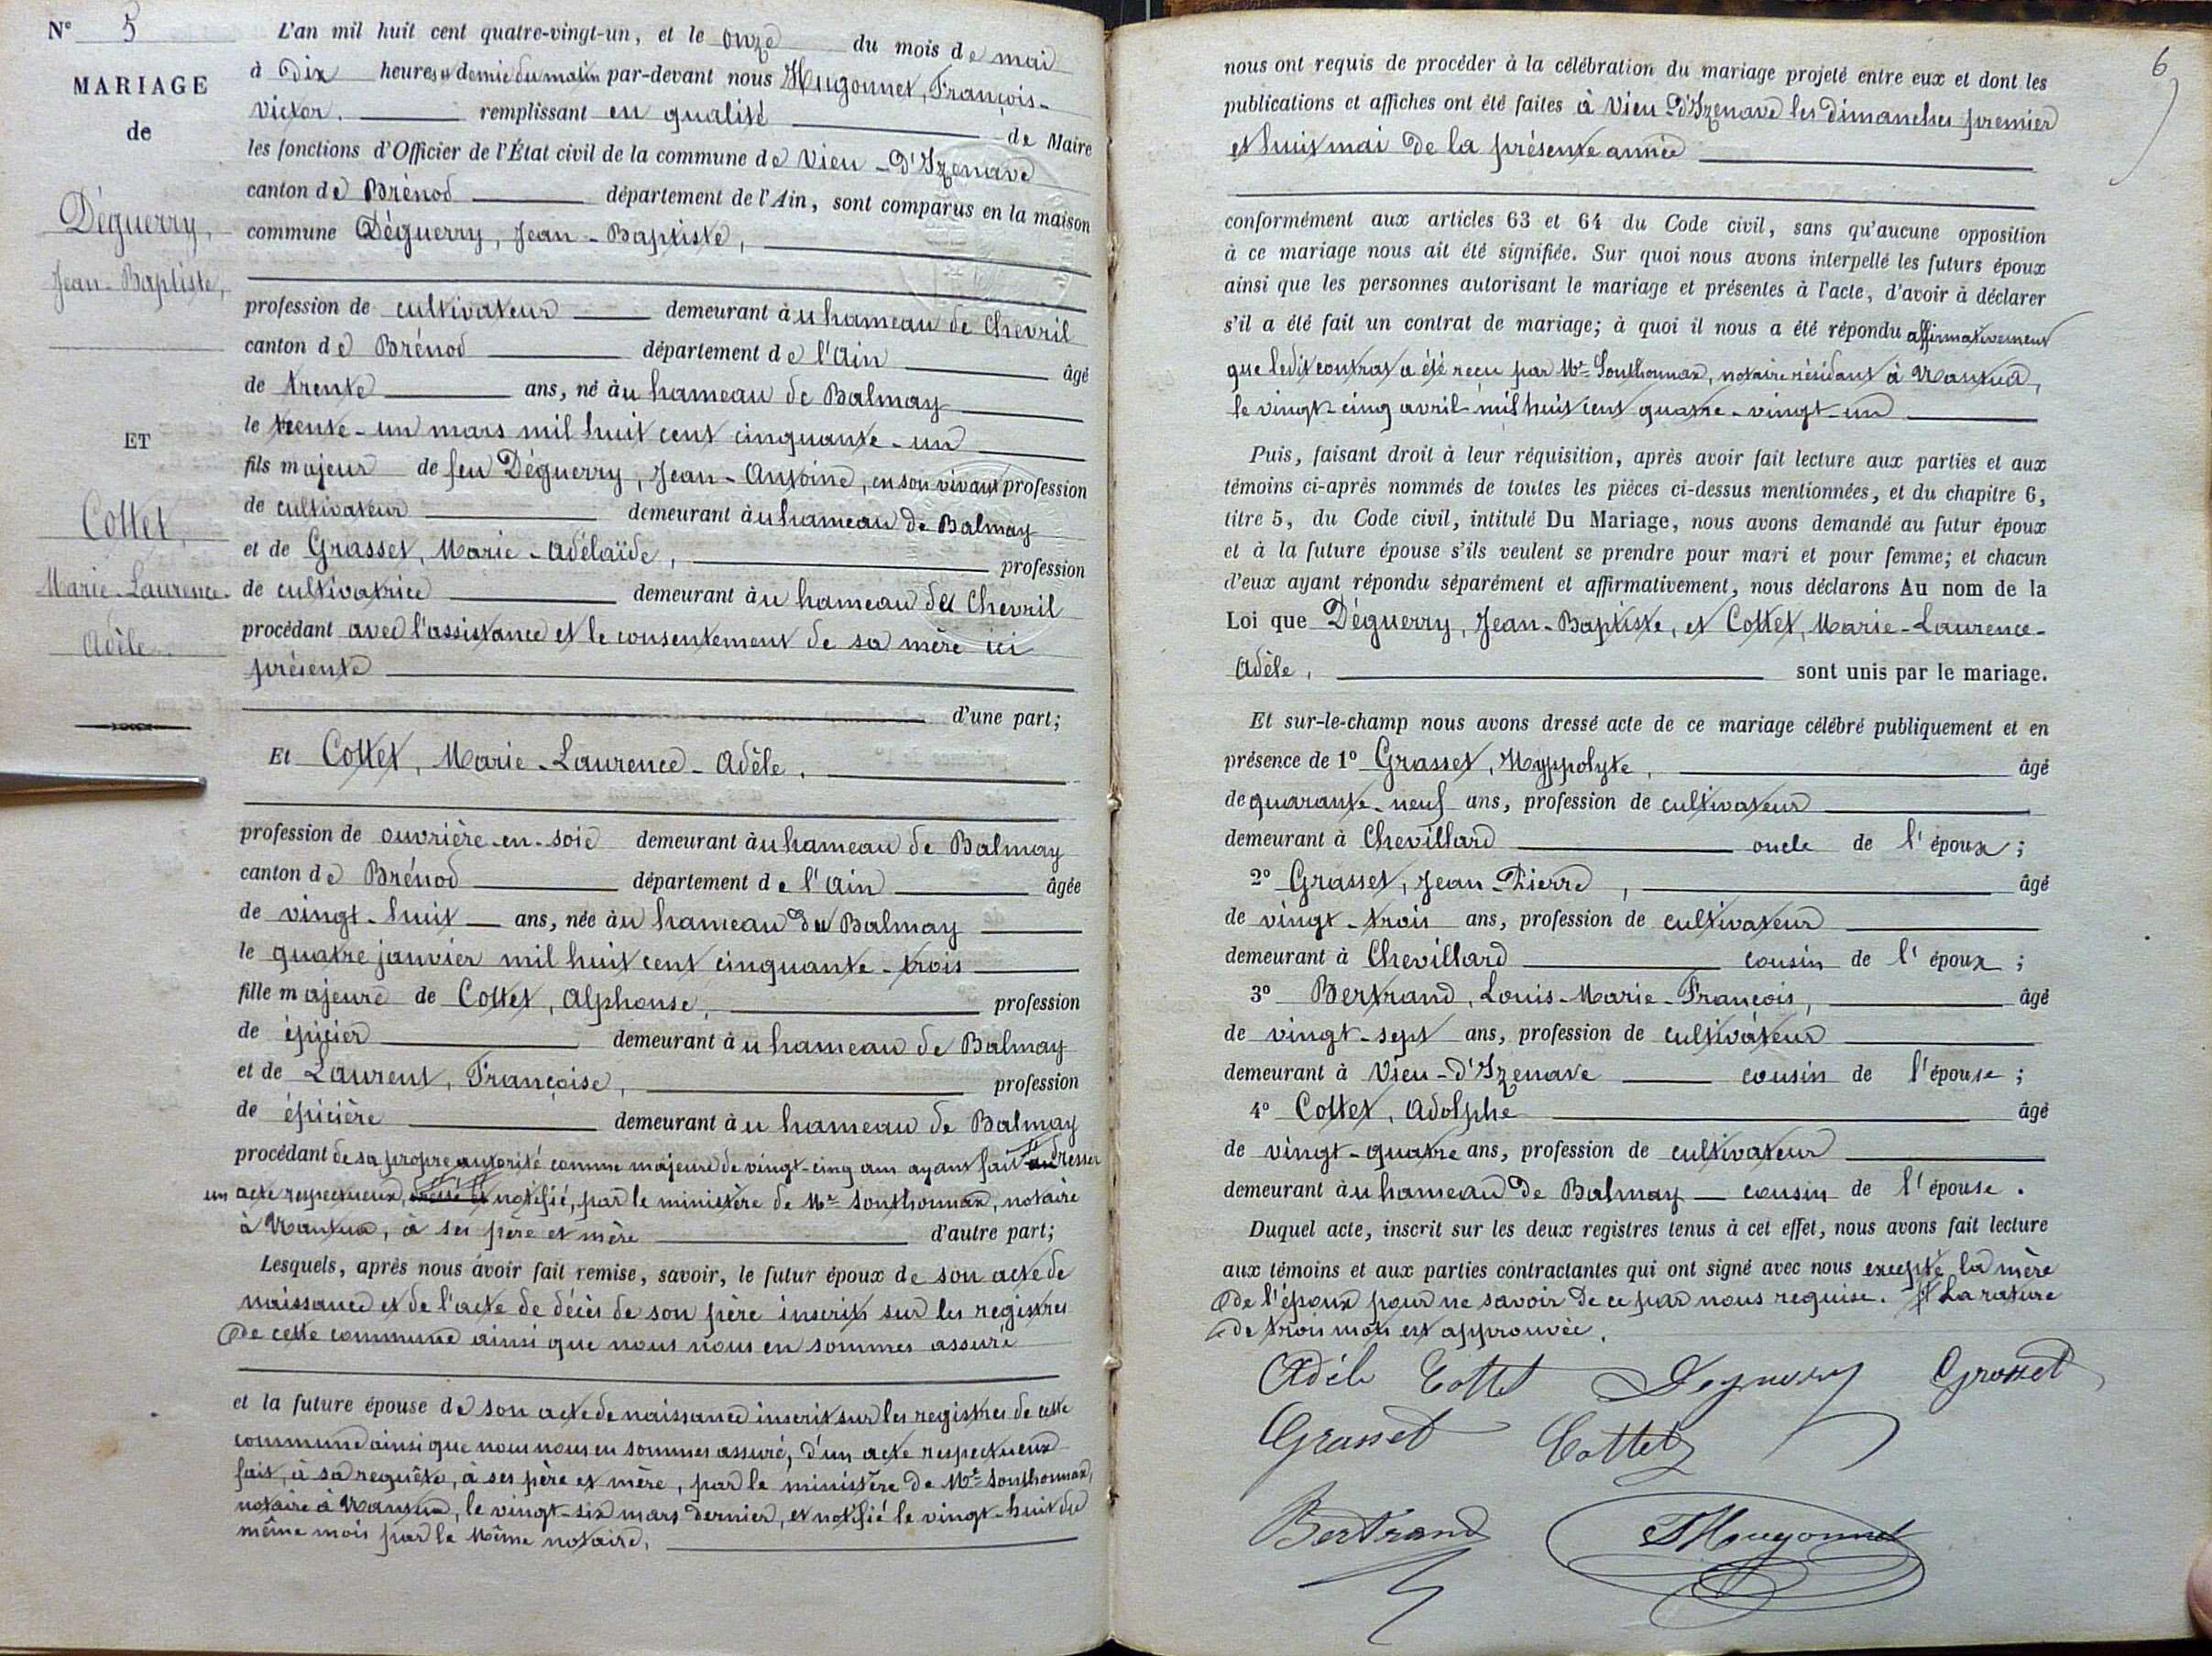 N° 5
MARIAGE
de
Déguerry,
Jean-Baptiste,
ET
Cottet,
Marie-Laurence-
Adèle.
L'an mil huit cent quatre-vingt-un, et le onze du mois de mai
à dix heures et demie du matin par-devant nous Hugonnet, François-
victor. remplissant en qualité de Maire
les fonctions d'Officier de l'État civil de la commune de Vieu-D'Izenave
canton de Brénod département de l'Ain, sont comparus en la maison
commune Déguerry, Jean-Baptiste,
profession de cultivateur demeurant à u hameau de Chevril
canton de Brénod département de l'Ain âgé
de trente ans, né à u hameau de Balmay
le trente-un mars mil huit cent cinquante-un
fils majeur de feu Déguerry, Jean-Antoine, en son vivant profession
de cultivateur demeurant à u hameau de Balmay
et de Grasset, Marie-Adélaïde, profession
de cultivatrice demeurant à u hameau de Chevril
procédant avec l'assistance et le consentement de sa mère ici
présente
d'une part;
Et Cottet, Marie-Laurence-Adèle,
profession de ouvrière-en-soie demeurant à u hameau de Balmay
canton de Brénod département de l'Ain âgée
de vingt-huit ans, née à u hameau de Balmay
le quatre janvier mil huit cent cinquante-trois
fille majeure de Cottet, Alphonse, profession
de épicier demeurant à u hameau de Balmay
et de Laurent, Françoise, profession
de épicière demeurant à u hameau de Balmay
procédant de sa propre autorité comme majeure de vingt-cinq ans ayant fait dresser
un acte respectueux, notifié, par le ministère de Me Sonthonnax, notaire
à Nantua, à ses père et mère d'autre part;
Lesquels, après nous avoir fait remise, savoir, le futur époux de son acte de
naissance et de l'acte de décès de son père inscrits sur les registres
de cette commune ainsi que nous nous en sommes assuré
et la future épouse de son acte de naissance inscrit sur les registres de cette
commune ainsi que nous nous en sommes assuré, d'un acte respectueux
fait, à sa requête, à ses père et mère, par le ministère de Me Sonthonnax,
notaire à Nantua, le vingt-six mars dernier, et notifié le vingt-huit du
même mois par le même notaire,
6
nous ont requis de procéder à la célébration du mariage projeté entre eux et dont les
publications et affiches ont été faites à Vieu-D'Izenave les dimanches premier
et huit mai de la présente année
conformément aux articles 63 et 64 du Code civil, sans qu'aucune opposition
à ce mariage nous ait été signifiée. Sur quoi nous avons interpellé les futurs époux
ainsi que les personnes autorisant le mariage et présentes à l'acte, d'avoir à déclarer
s'il a été fait un contrat de mariage; à quoi il nous a été répondu affirmativement
que ledit contrat a été reçu par Me Sonthonnax, notaire résidant à Nantua,
le vingt-cinq avril mil huit cent quatre-vingt-un
Puis, faisant droit à leur réquisition, après avoir fait lecture aux parties et aux
témoins ci-après nommés de toutes les pièces ci-dessus mentionnées, et du chapitre 6,
titre 5, du Code civil, intitulé Du Mariage, nous avons demandé au futur époux
et à la future épouse s'ils veulent se prendre pour mari et pour femme; et chacun
d'eux ayant répondu séparément et affirmativement, nous déclarons Au nom de la
Loi que Déguerry, Jean-Baptiste, et Cottet, Marie-Laurence-
Adèle, sont unis par le mariage.
Et sur-le-champ nous avons dressé acte de ce mariage célébré publiquement et en
présence de 1° Grasset, Hyppolyte, âgé
de quarante-neuf ans, profession de cultivateur
demeurant à Chevillard oncle de l'époux;
2° Grasset, Jean-Pierre, âgé
de vingt-trois ans, profession de cultivateur
demeurant à Chevillard cousin de l'époux;
3° Bertrand, Louis-Marie-François, âgé
de vingt-sept ans, profession de cultivateur
demeurant à Vieu-d'Izenave cousin de l'épouse;
4° Cottet, Adolphe âgé
de vingt-quatre ans, profession de cultivateur
demeurant à u hameau de Balmay cousin de l'épouse.
Duquel acte, inscrit sur les deux registres tenus à cet effet, nous avons fait lecture
aux témoins et aux parties contractantes qui ont signé avec nous excepté la mère
de l'époux pour ne savoir de ce par nous requise. La rature
de trois mots est approuvée.
Adèle Cottet Deguerry Grasset
Grasset Cottet
Bertrand FHugonnet